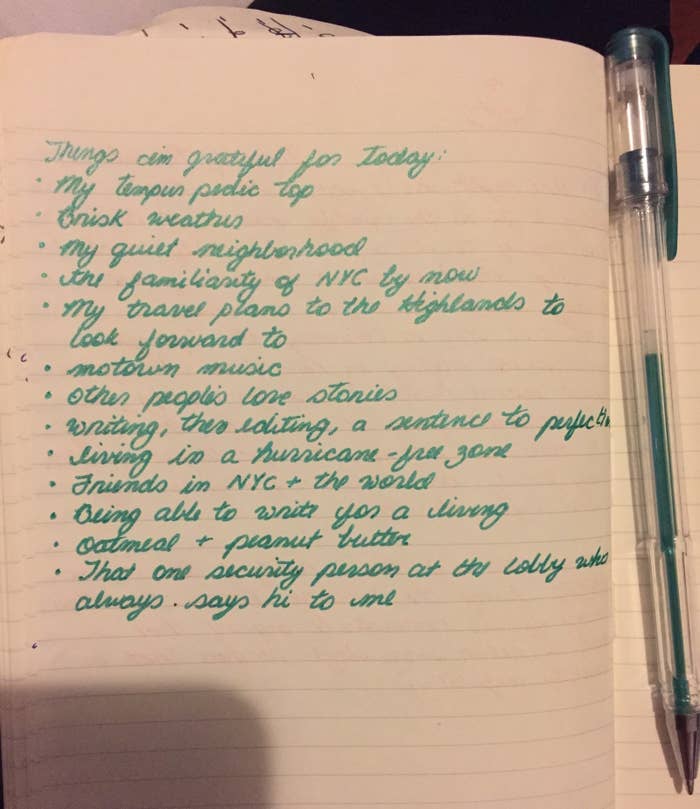 Things im grateful for Today:
• My tempur pedic top
• Brisk weather
• My quiet neighborhood
• the familiarity of NYC by now
• My travel plans to the Highlands to
look forward to
• motown music
• other people's love stories
• writing, then editing, a sentence to perfection
• living in a hurricane-free zone
• Friends in NYC + the world
• Being able to write for a living
• oatmeal + peanut butter
• That one security person at the lobby who
always says hi to me